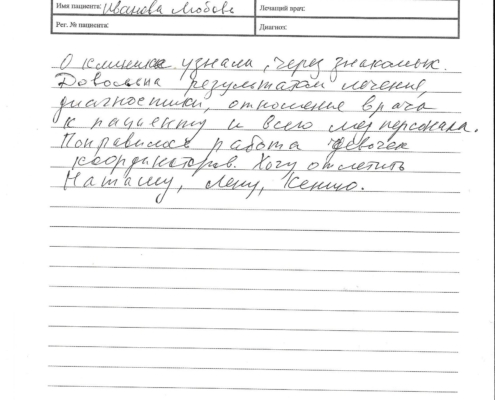 Имя пациента: Иванова Любовь Лечащий врач:
Рег. № пациента: Диагноз:
О клинике узнала, через знакомых.
Довольна результатом лечения,
диагностики, отношение врача
к пациенту и всего мед персонала.
Понравилось работа девочек
координаторов. Хочу отметить
Наташу, Лену, Ксению.